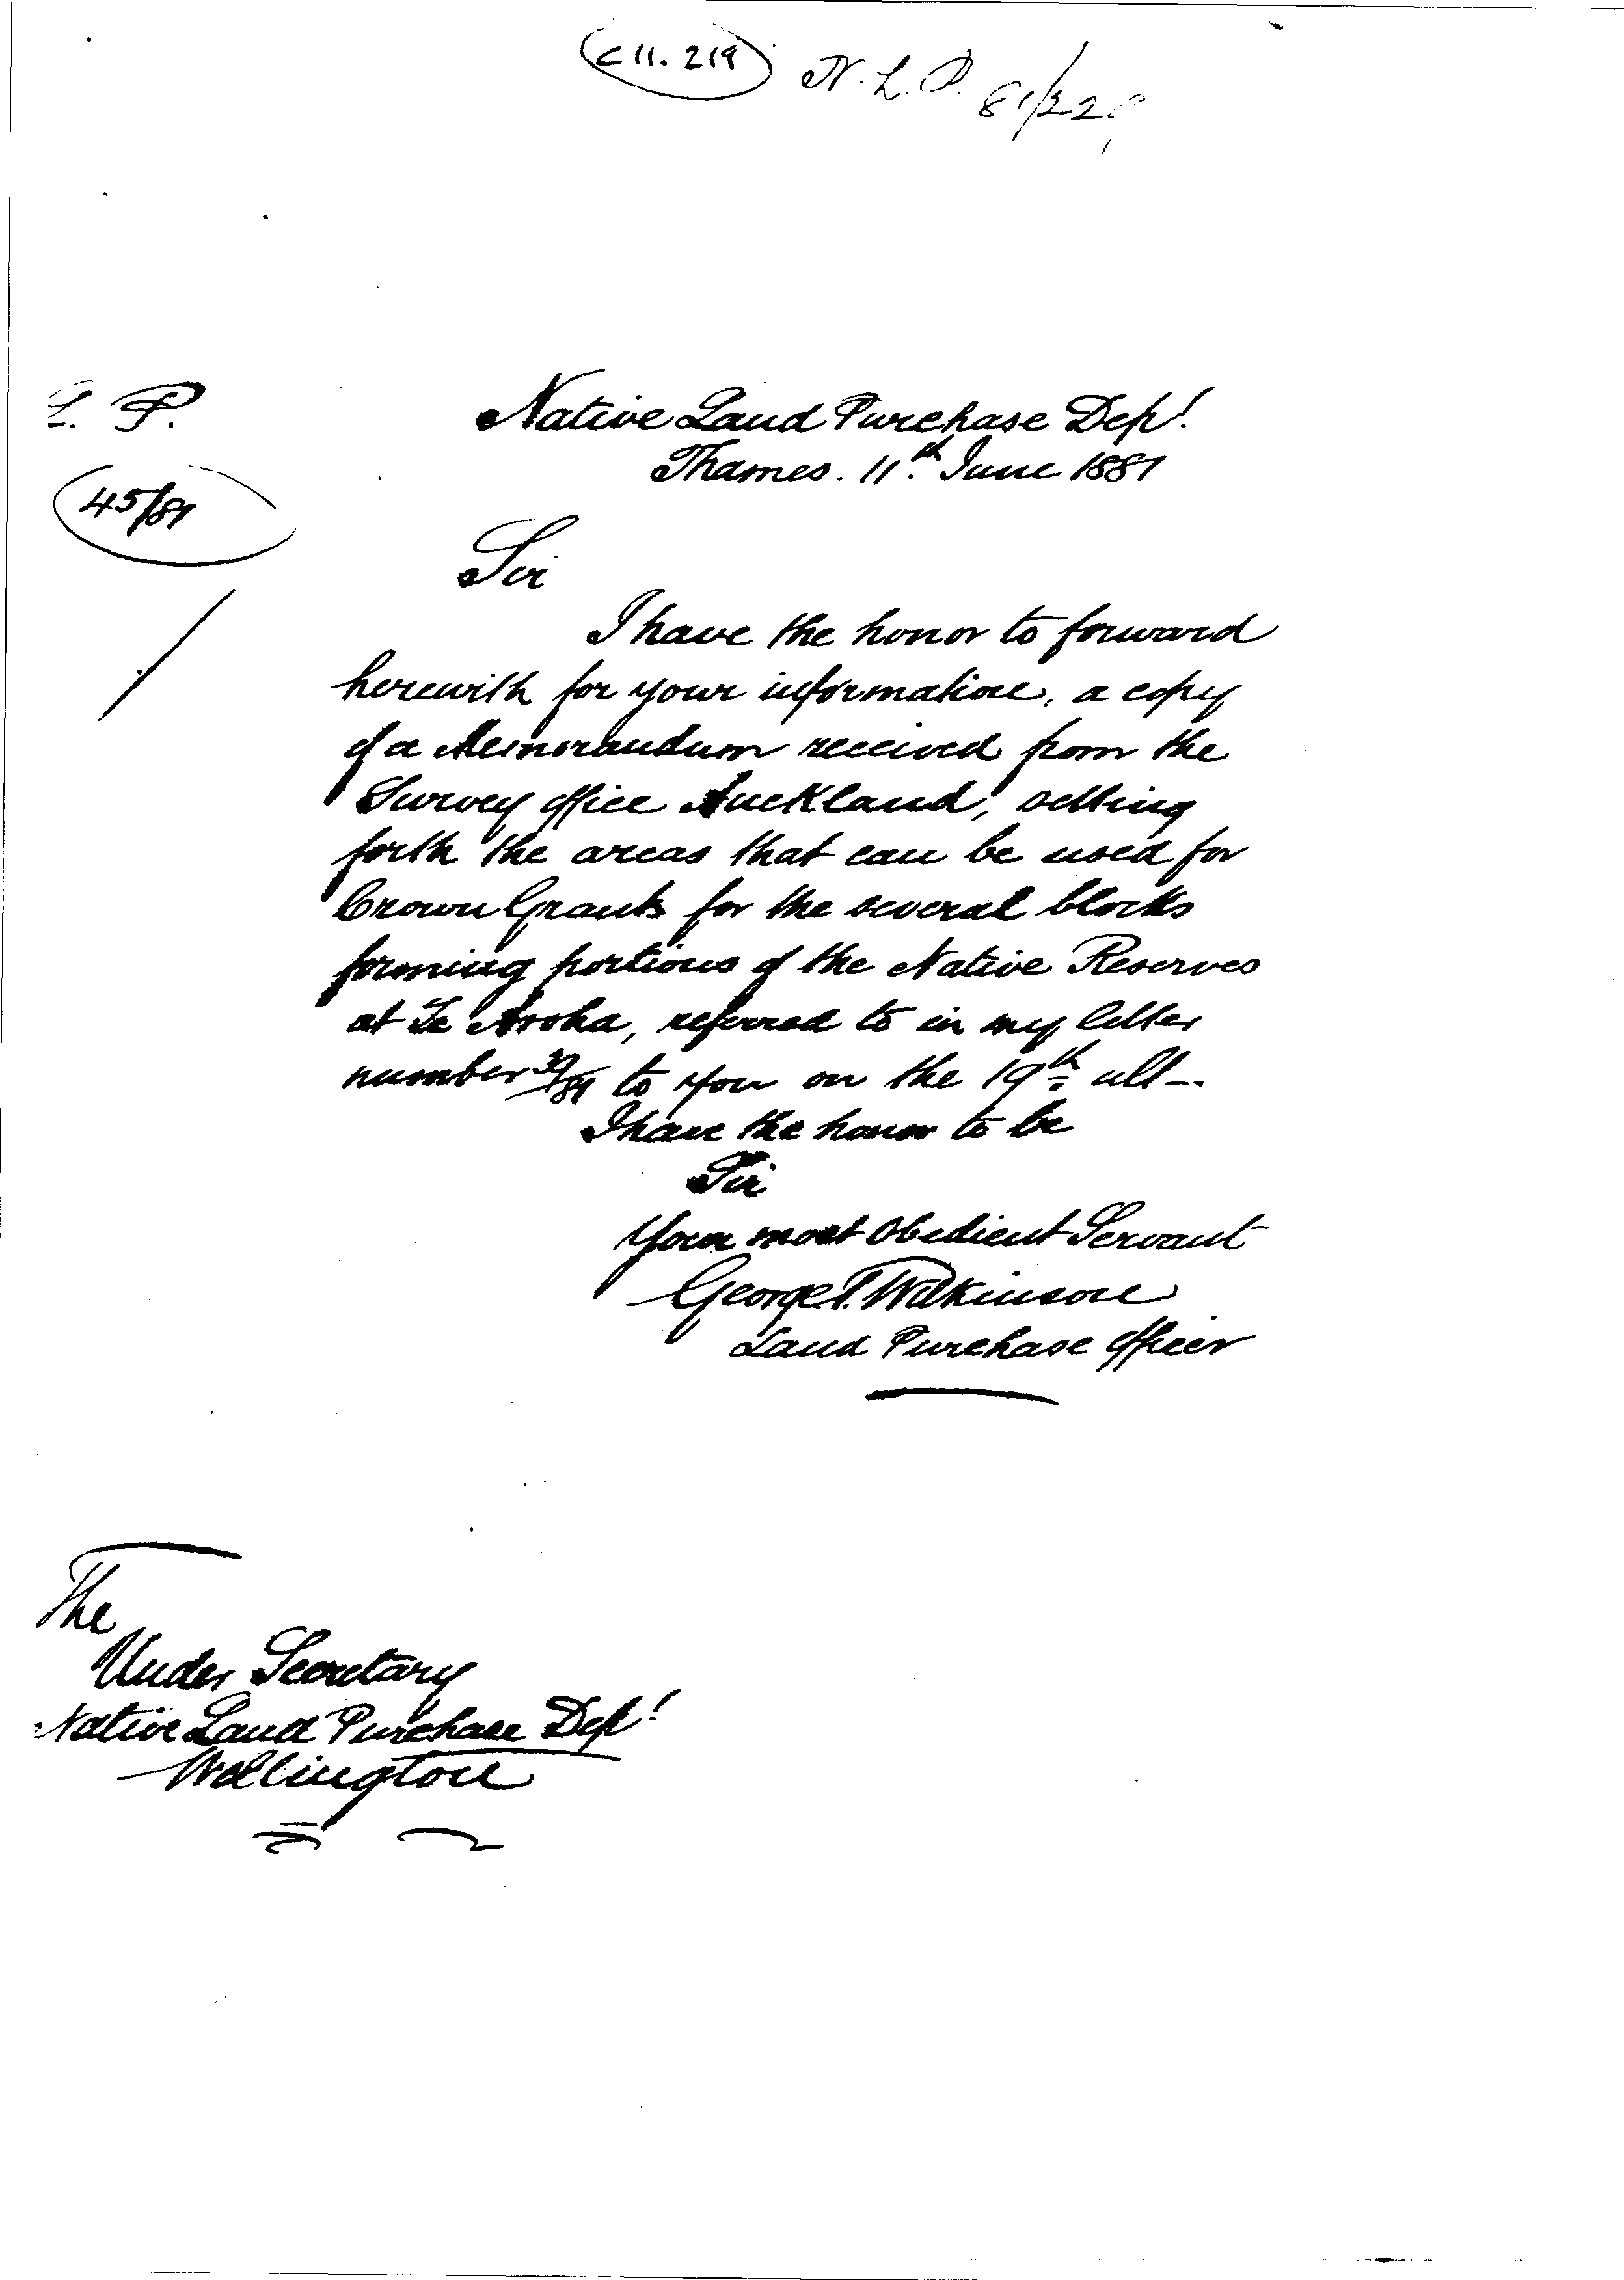 C 11. 219
N. L. P.
L. P.
45/81
Native Land Purchase Dept.
Thames. 11th. June 1881
Sir
I have the honor to forward
herewith for your information, a copy
of a Memorandum received from the
Survey office Auckland, setting
forth the areas that can be used for
Crown Grants for the several blocks
forming portions of the Native Reserves
at Te Aroha, referred to in my letter
number 39/81 to you on the 19th ult—.
I have the honor to be
Sir
Your most Obedient Servant
George T. Wilkinson
Land Purchase Officer
The
Under Secretary
Native Land Purchase Dept.
Wellington